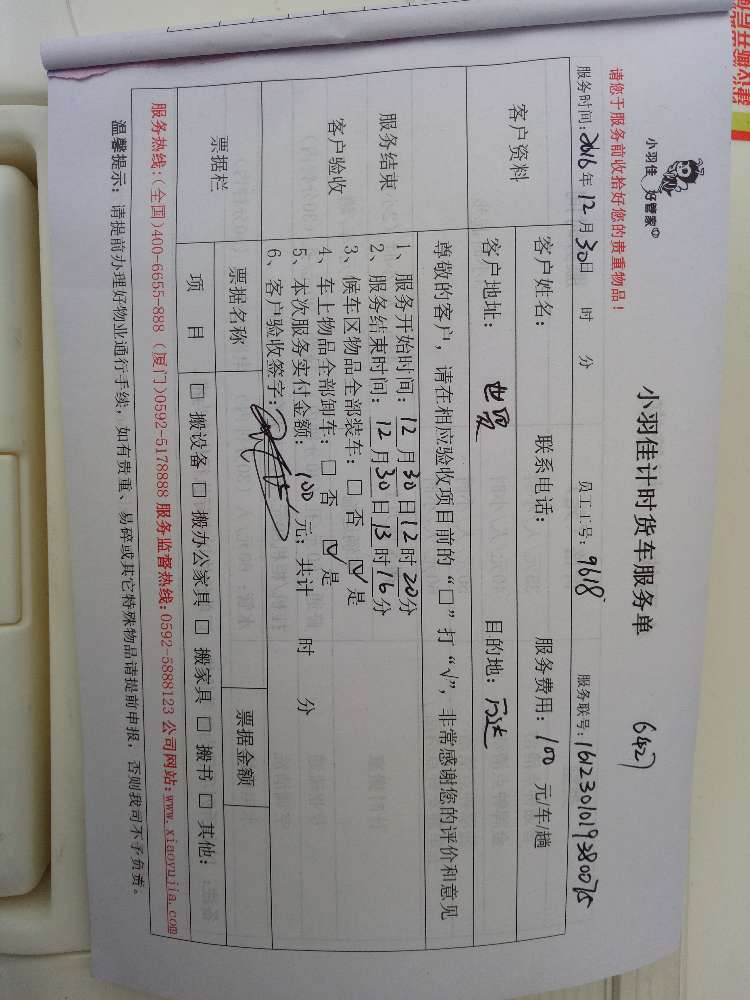 请您于服务前收拾好您的贵重物品！
小羽佳 好管家
小羽佳计时货车服务单
6427
服务时间：2016年12月30日 时 分 员工工号：9618 服务联号：1612301019380075
客户资料
客户姓名： 联系电话： 服务费用：100 元/车/趟
客户地址：世贸 目的地：万达
尊敬的客户，请在相应验收项目前的“□”打“√”，非常感谢您的评价和意见
服务结束
客户验收
1、服务开始时间：12月30日12时20分
2、服务结束时间：12月30日13时16分
3、候车区物品全部装车：□ 否 ☑ 是
4、车上物品全部卸车：□ 否 ☑ 是
5、本次服务实付金额：100 元；共计 时 分
6、客户验收签字：
票据栏
票据名称 票据金额
项 目 □ 搬设备 □ 搬办公家具 □ 搬家具 □ 搬书 □ 其他：
服务热线：(全国)400-6655-888 (厦门)0592-5178888 服务监督热线：0592-5888123 公司网站：www.xiaoyujia.com
温馨提示：请提前办理好物业通行手续，如有贵重、易碎或其它特殊物品请提前申报，否则我司不予负责。